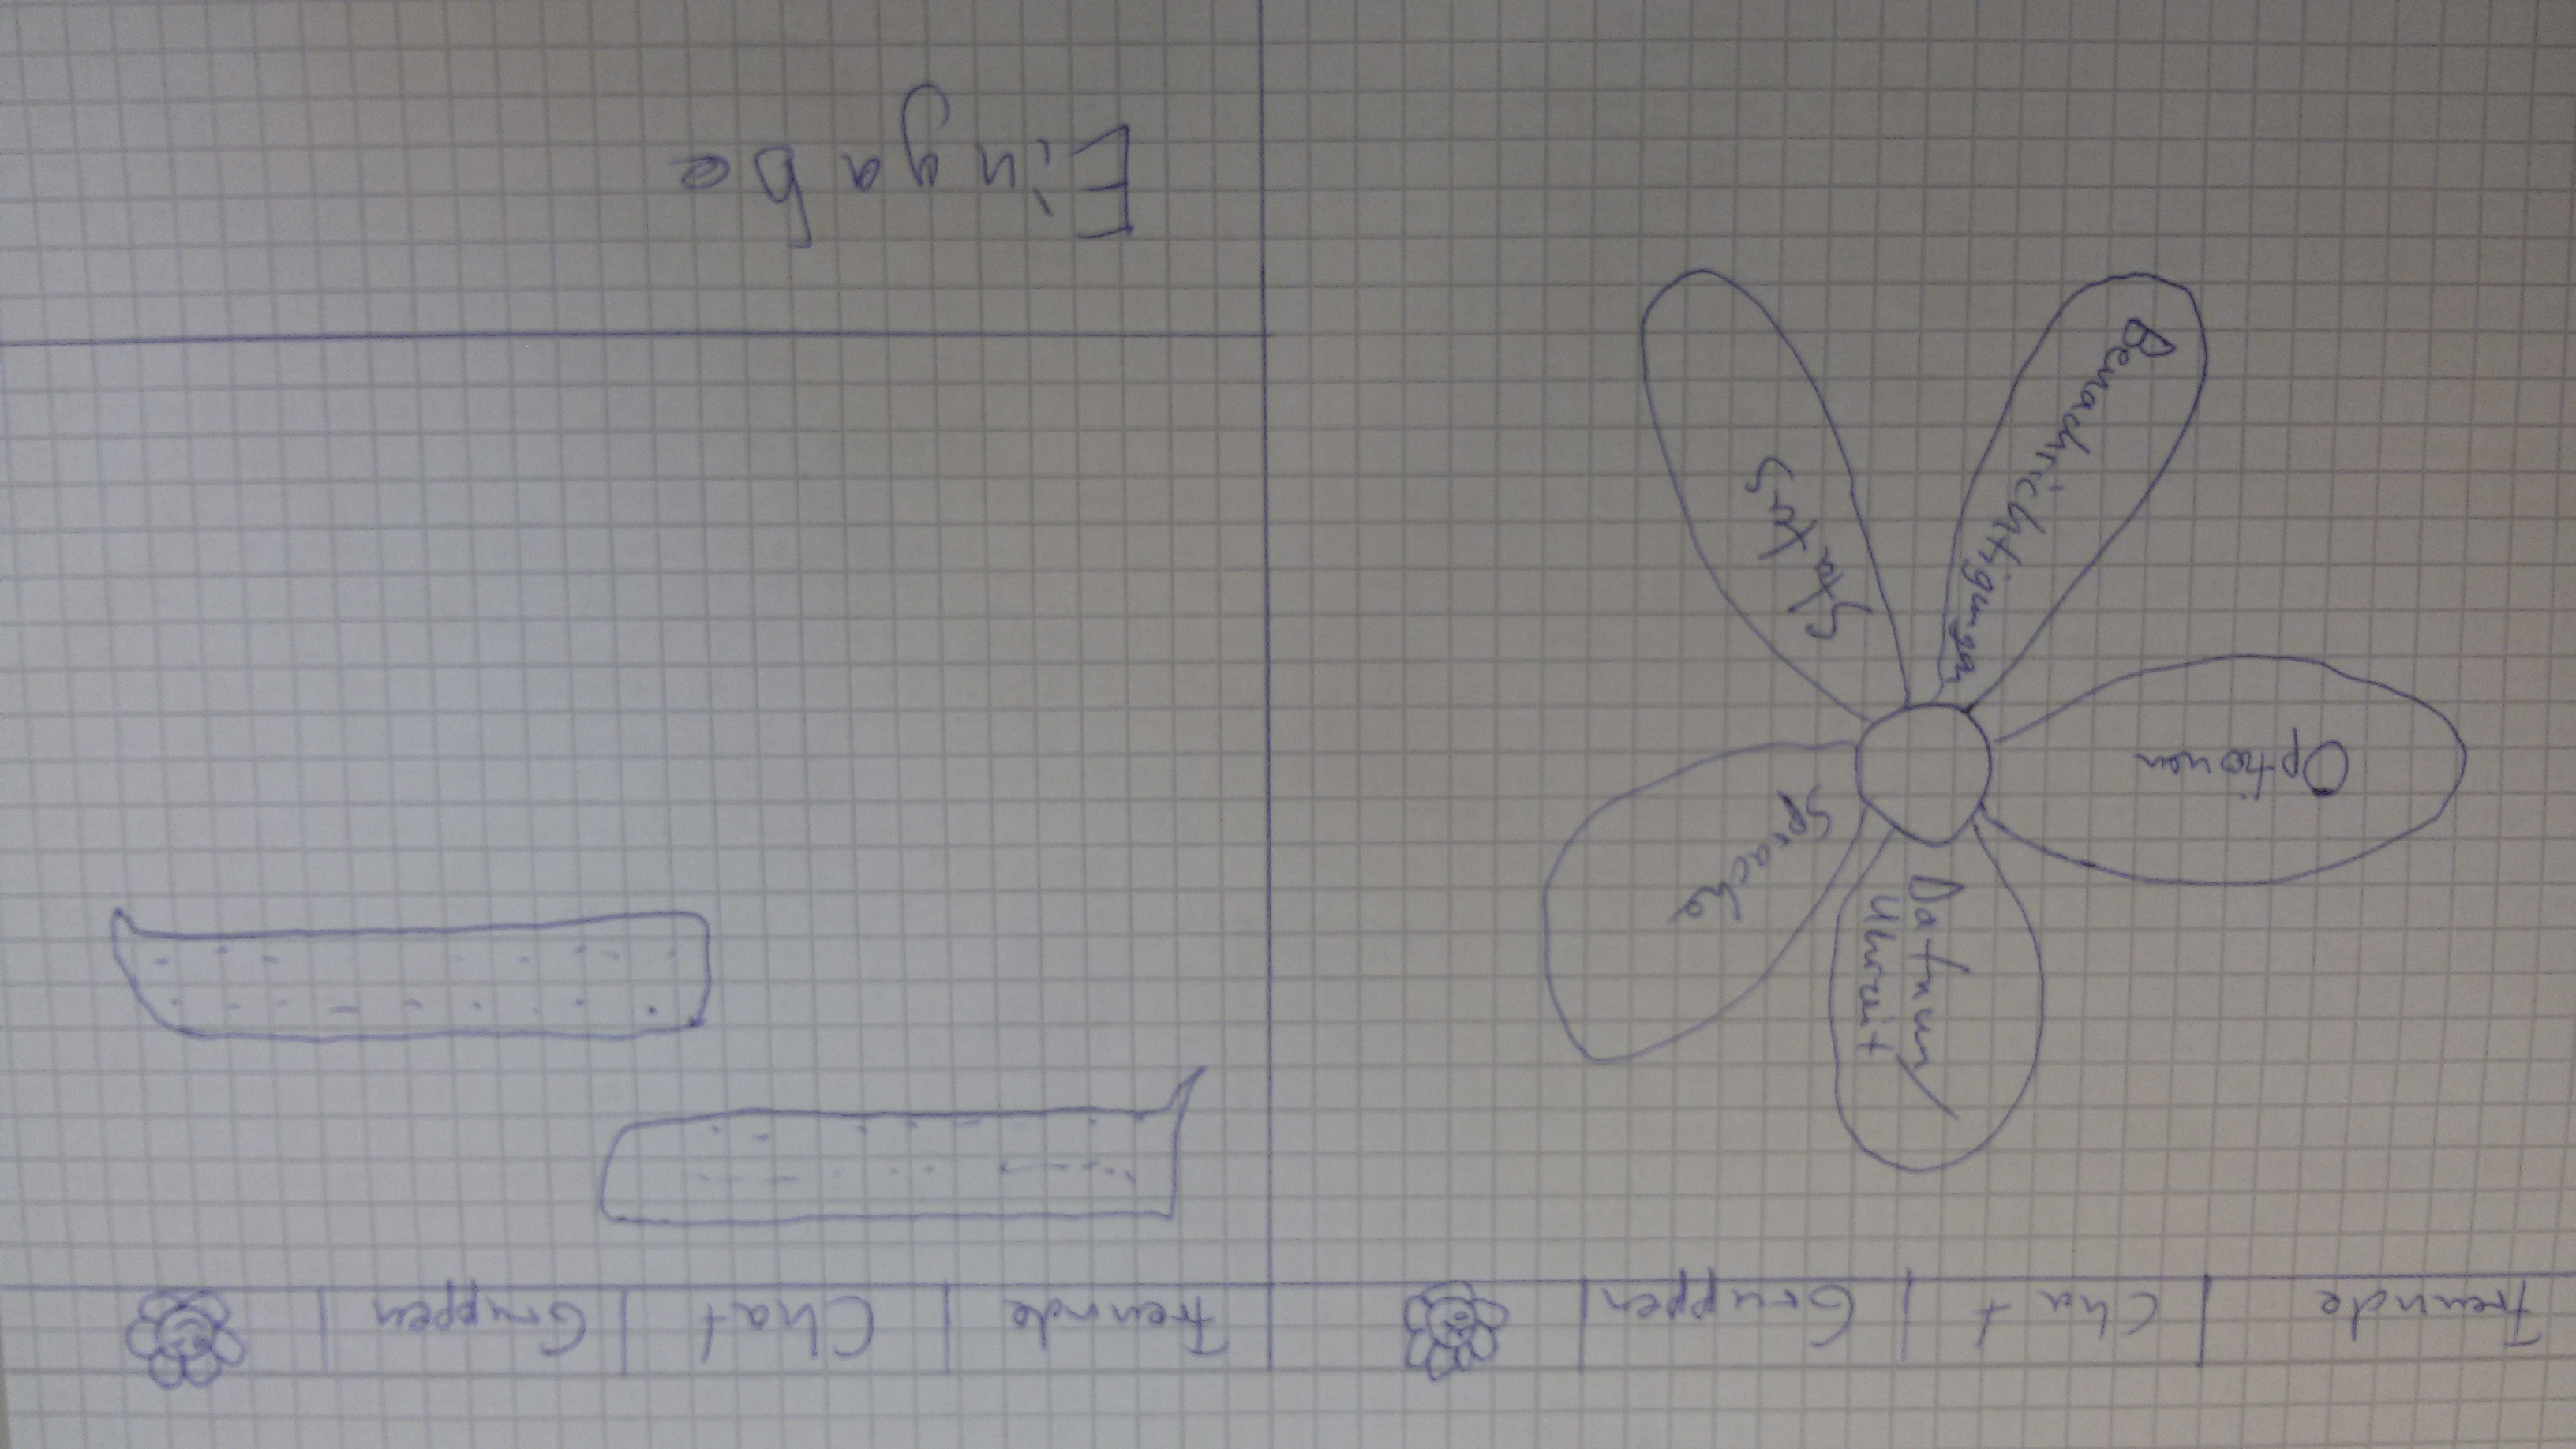 Freunde | Chat | Gruppen |
Datum/
Uhrzeit
Sprache
Optionen
Benachrichtigungen
Status
Freunde | Chat | Gruppen |
Eingabe